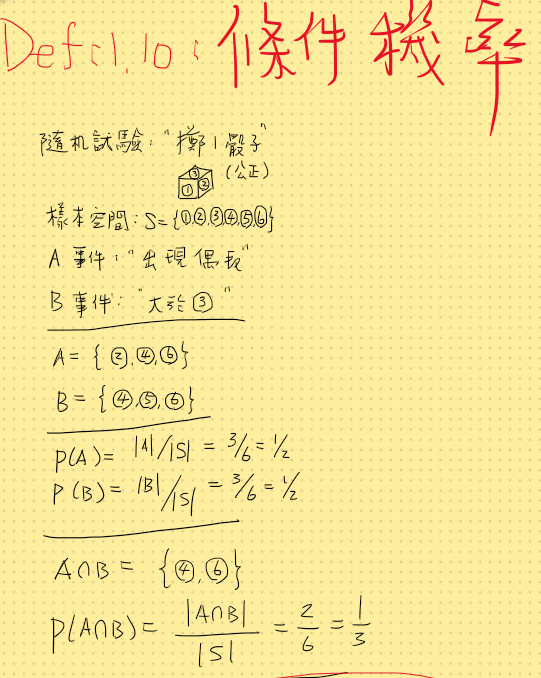 Def:1.10: 條件機率
隨机試驗: "擲1骰子"
① ② ③ (公正)
樣本空間: S={①,②,③,④,⑤,⑥}
A 事件: "出現偶
B 事件: "大於③"
A = {②,④,⑥}
B = {④,⑤,⑥}
P(A) = |A|/|S| = 3/6 = 1/2
P(B) = |B|/|S| = 3/6 = 1/2
A∩B = {④,⑥}
P(A∩B) = |A∩B|/|S| = 2/6 = 1/3